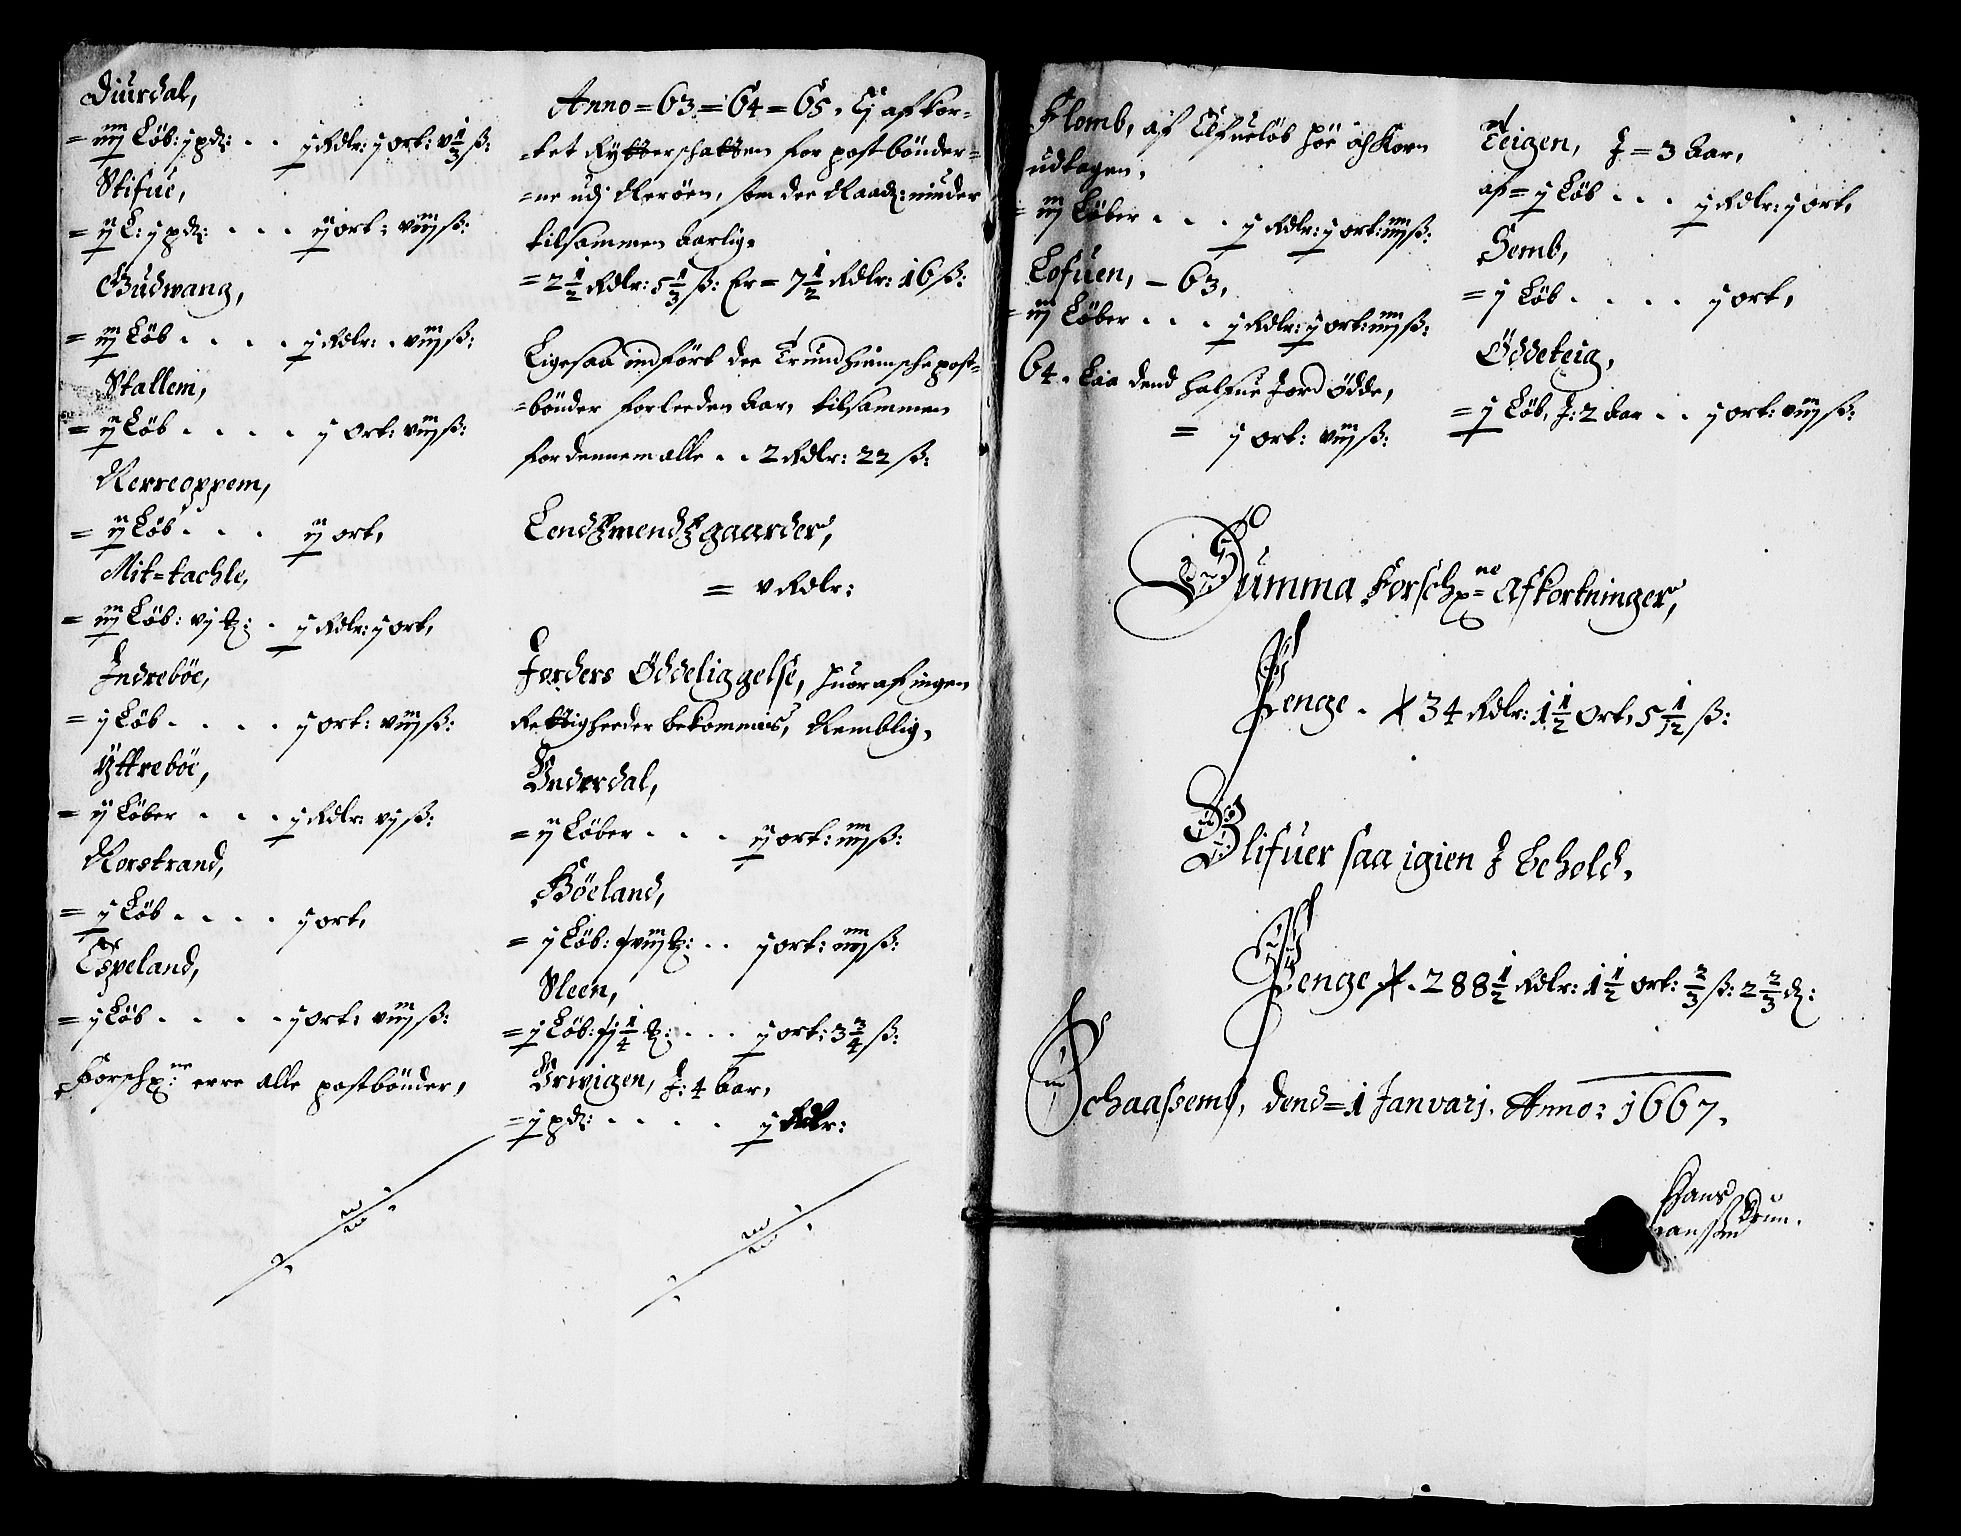 Diurdal,
= iiij Løb: j pd: . . j Rdlr: j ort: v 1/3 ß:
Stifue,
= ij L: j pd: . . . ij ort: viij ß:
Gudwang,
= iij Løb . . . . j Rdlr: . viij ß:
Stallem,
= ij Løb . . . . j ort: viij ß:
Nerreoppem,
= ij Løb . . . ij ort,
Mit=tachle,
= iij Løb: vj : . j Rdlr: j ort,
Indreböe,
= j Løb . . . . j ort: viij ß:
Yttreböe,
= ij Løber . . . j Rdlr: vj ß:
Norstrand,
= j Løb . . . . j ort,
Espeland,
= j Løb . . . . j ort, viij ß:
Forschr:ne erre alle postbönder,
Anno = 63 = 64 = 65, Ej afkor-
=tet Rytterschatten for postbönder=
=ne udj Neröen, som dee Naad: niuder
tilsammen Aarlig,
= 2 1/2 Rdlr: 5 1/3 ß: Er = 7 1/2 Rdlr: 16 ß:
Ligesaa indfört dee Trundhiemsche post-
=bönder forleeden Aar, tilsammen
for dennem alle . . 2 Rdlr: 22 ß:
Lendtzmendtzgaarder,
= v Rdlr:
Jorders Öddeliggelse, huor af ingen
Rettigheeder bekommis, Nemblig,
Underdal,
= ij Løber . . . ij ort: iiij ß:
Böeland,
= j Løb: viij : . . j ort: iiij ß:
Steen,
= j Løb: 1/4 : . . . j ort: 3 3/4 ß:
Urwigen, J: 4 Aar,
= j pd: . . . . j Rdlr:
Flomb, af Elfueløb höe och Korn
udtagen,
= iij Løber . . . j Rdlr: j ort: iiij ß:
Lofuen, - 63,
= iij Løber . . . j Rdlr: j ort: iiij ß:
64, Laa dend halfue Jord ödde,
= j ort: viij ß:
Teigen, J = 3 Aar,
af = j Løb . . . j Rdlr: j ort,
Semb,
= j Løb . . . . j ort,
Öddeteig,
= j Løb, J: 2 Aar . . j ort: viij ß:
Summa Forschr=ne Afkortninger,
Penge . 34 Rdlr: 1 1/2 Ort, 5 1/12 ß:
Blifuer saa igien J Behold,
Penge . 288 1/2 Rdlr: 1 1/2 ort: 2/3 ß: 2 2/3 d:
Schaassemb, dend = 1 Janvarj, Anno: 1667,
Hans
Hansson